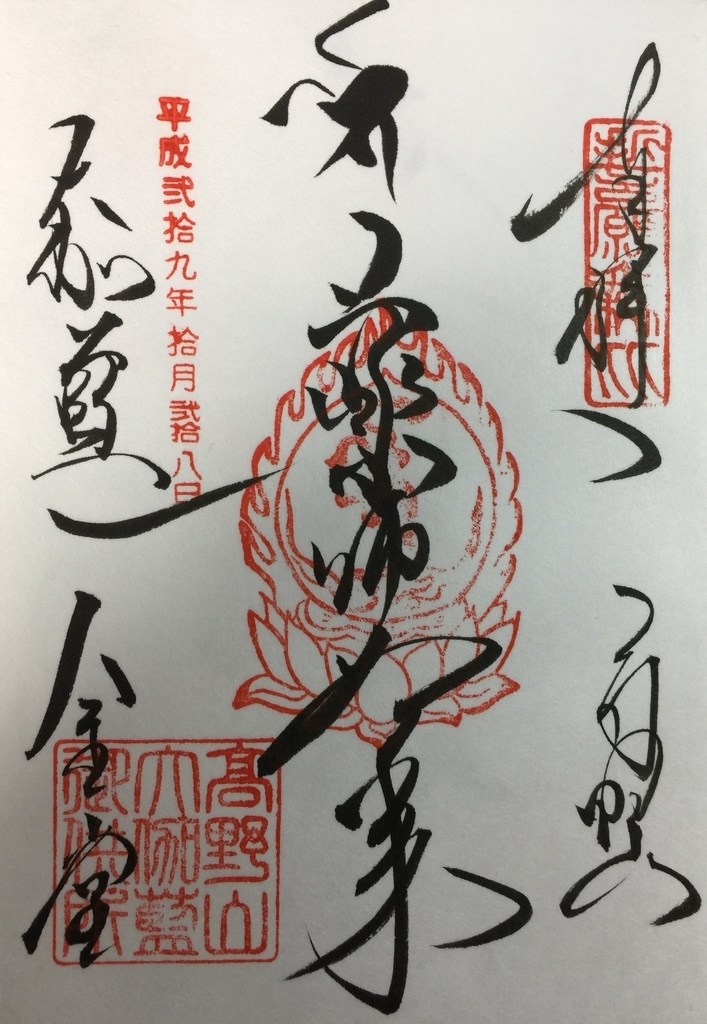 奉拝
高野山
薬師如来
平成弐拾九年拾月弐拾八日
伽藍
金堂
高野山
大伽藍
御供所